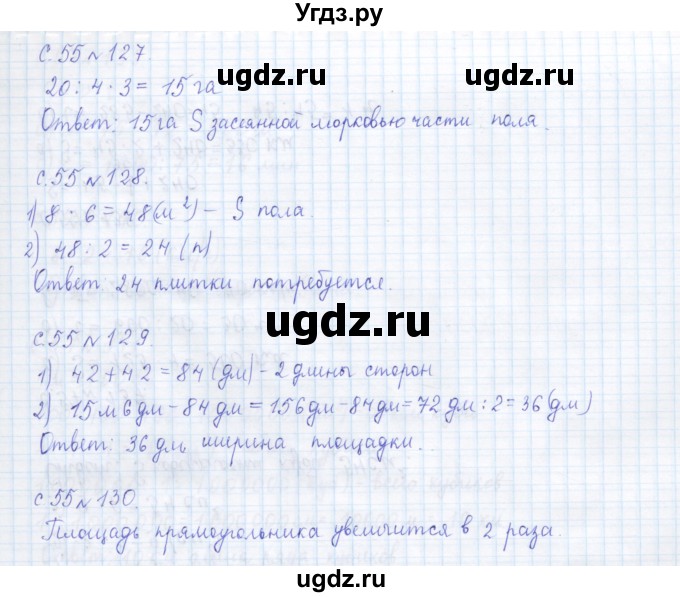 Угдз.ру
с.55 № 127.
20 : 4 · 3 = 15 га
Ответ: 15 га S засеянной морковью части поля.
ugdz.ru ugdz.ru
с.55 № 128.
1) 8 · 6 = 48 (м²) - S пола.
2) 48 : 2 = 24 (п)
Ответ: 24 плитки потребуется.
ugdz.ru ugdz.ru
с.55 № 129
1) 42 + 42 = 84 (дм) - 2 длины сторон
2) 15м 6дм - 84 дм = 156дм - 84дм = 72 дм : 2 = 36 (дм)
Ответ: 36 дм ширина площадки.
с.55 № 130.
Площадь прямоугольника увеличится в 2 раза.
ugdz.ru